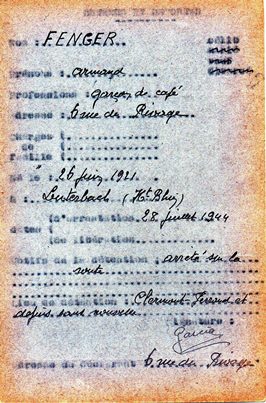 DETENUS ET DEPORTES
Nom : FENGER
Prénoms : Armand
Professions : garçon de café
Adresse : 6 rue du Rivage
Charges
de
famille
Né le : 26 juin 1921
à Lutterbach (Ht Rhin)
Dates (d'arrestation 28 1944
de (libération
Motifs de la détention : arrêté sur la
route
Lieu de détention : Clermont Ferrand et
depuis sans nouvelle
Signature :
Garcia
Adresse du 6 rue du Rivage